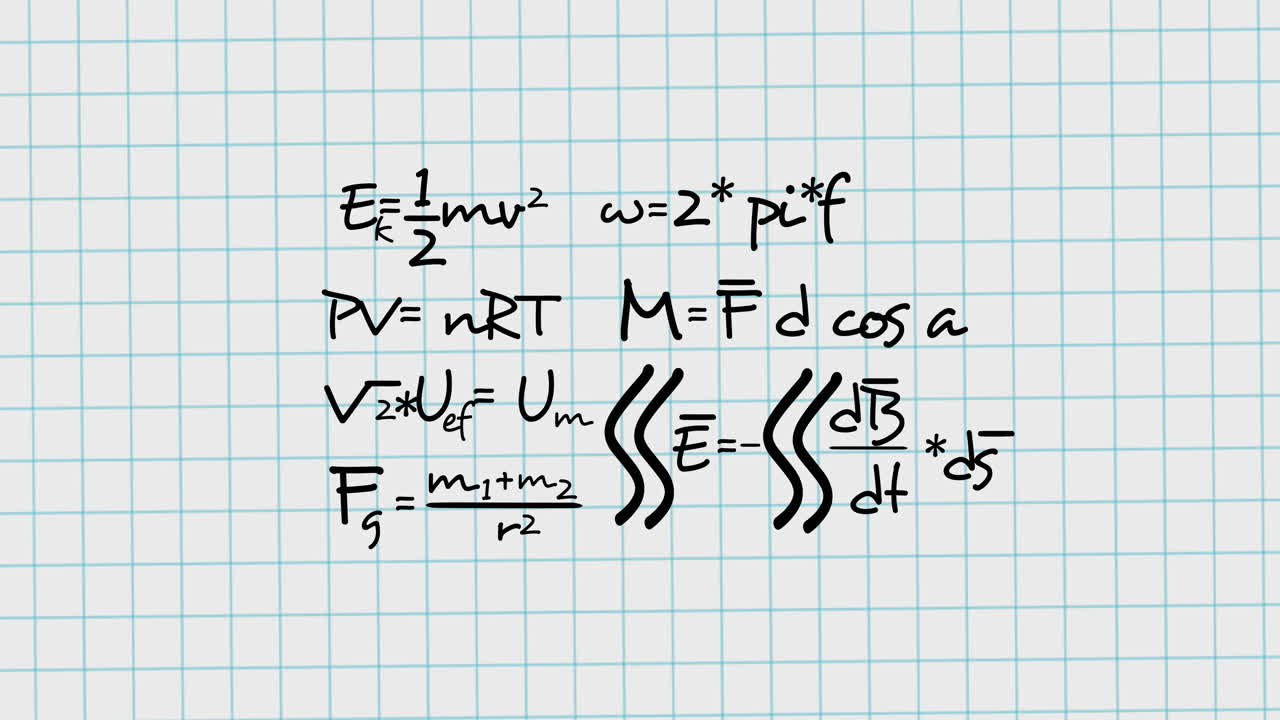 E_k = 1/2 mv² ω = 2* pi*f
PV = nRT M = F̅ d cos a
√2*U_ef = U_m ∬ E̅ = -∬ dB̅/dt * ds̅
F̅_g = m₁+m₂/r²